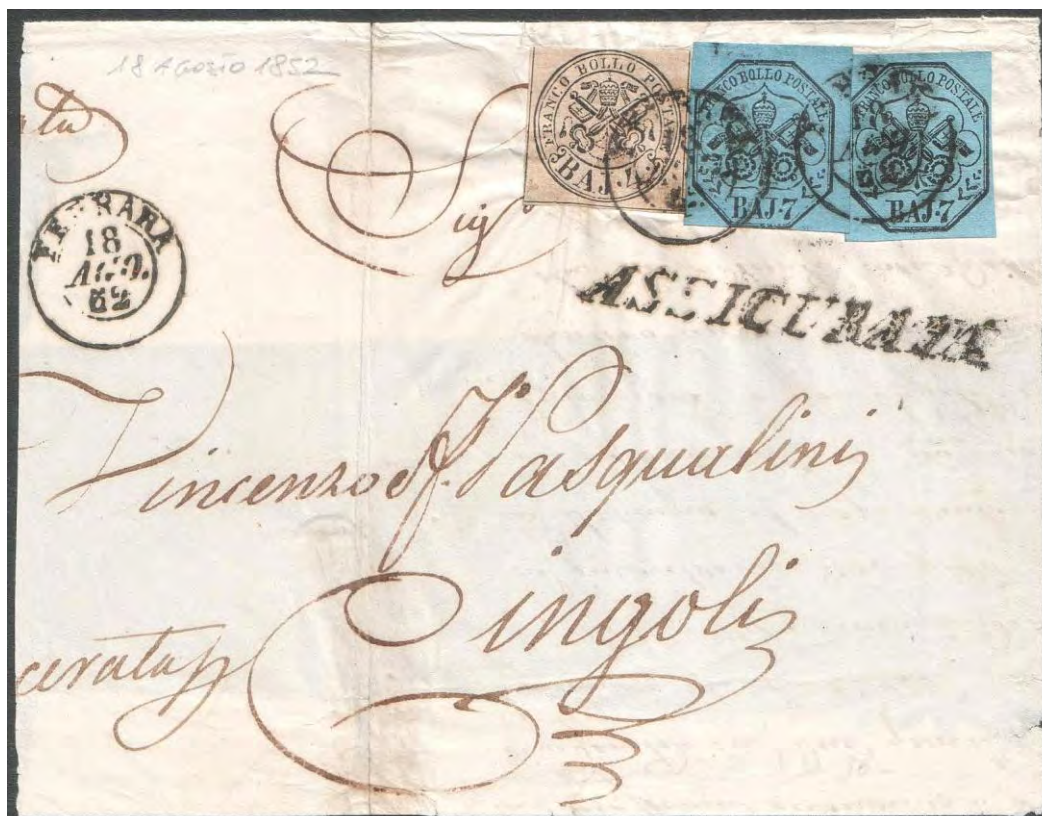 18 AGOSTO 1852
FRANCO BOLLO POSTALE
BAJ. 4
FRANCO BOLLO POSTALE
BAJ. 7
FRANCO BOLLO POSTALE
BAJ. 7
ata
Sig
FERRARA
18
AGO.
52
ASSICURATA
Vincenzo Pasqualini
Cingoli
cerata